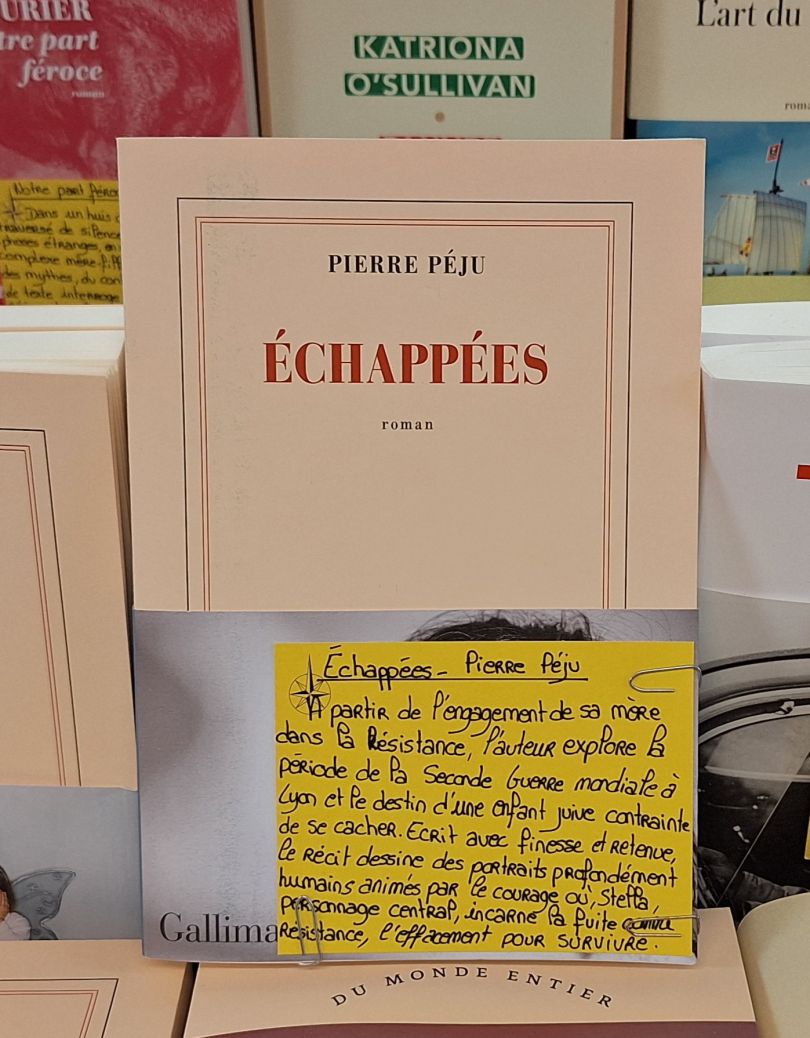 URIER
tre part
féroce
roman
KATRIONA
O'SULLIVAN
L'art du
roma
Notre part féroc
Dans un huis c
traversé de silence
phoses étranges, en
complexe mère-fi
des mythes, du con
de texte interroge
PIERRE PÉJU
ÉCHAPPÉES
roman
Échappées - Pierre Péju
A partir de l'engagement de sa mère
dans la Résistance, l'auteur explore la
période de la Seconde Guerre mondiale à
Lyon et le destin d'une enfant juive contrainte
de se cacher. Ecrit avec finesse et retenue,
le récit dessine des portraits profondément
humains animés par le courage où, Steffa,
personnage central, incarne la fuite comme
Résistance, l'effacement pour survivre.
Gallima
DU MONDE ENTIER